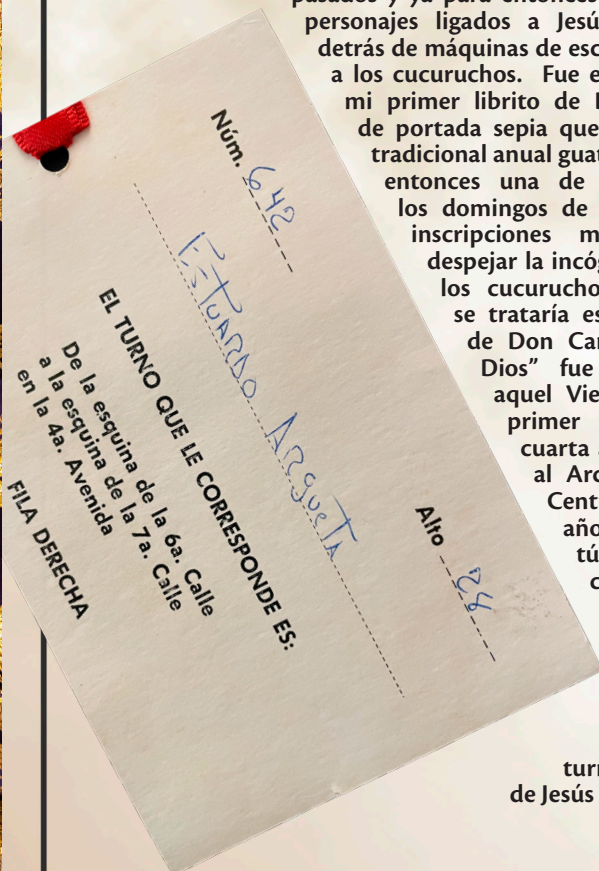 pasados y ya para entonces
personajes ligados a Jesú
detrás de máquinas de esc
a los cucuruchos. Fue e
mi primer librito de
de portada sepia que
tradicional anual guat
entonces una de
los domingos de
inscripciones m
despejar la incóg
los cucurucho
se trataría es
de Don Car
Dios” fue
aquel Vie
primer
cuarta
al Arc
Cent
año
tú
c
turn
de Jesús
Núm. 642
Alto 28
ESTUARDO ARGUETA
EL TURNO QUE LE CORRESPONDE ES:
De la esquina de la 6a. Calle
a la esquina de la 7a. Calle
en la 4a. Avenida
FILA DERECHA